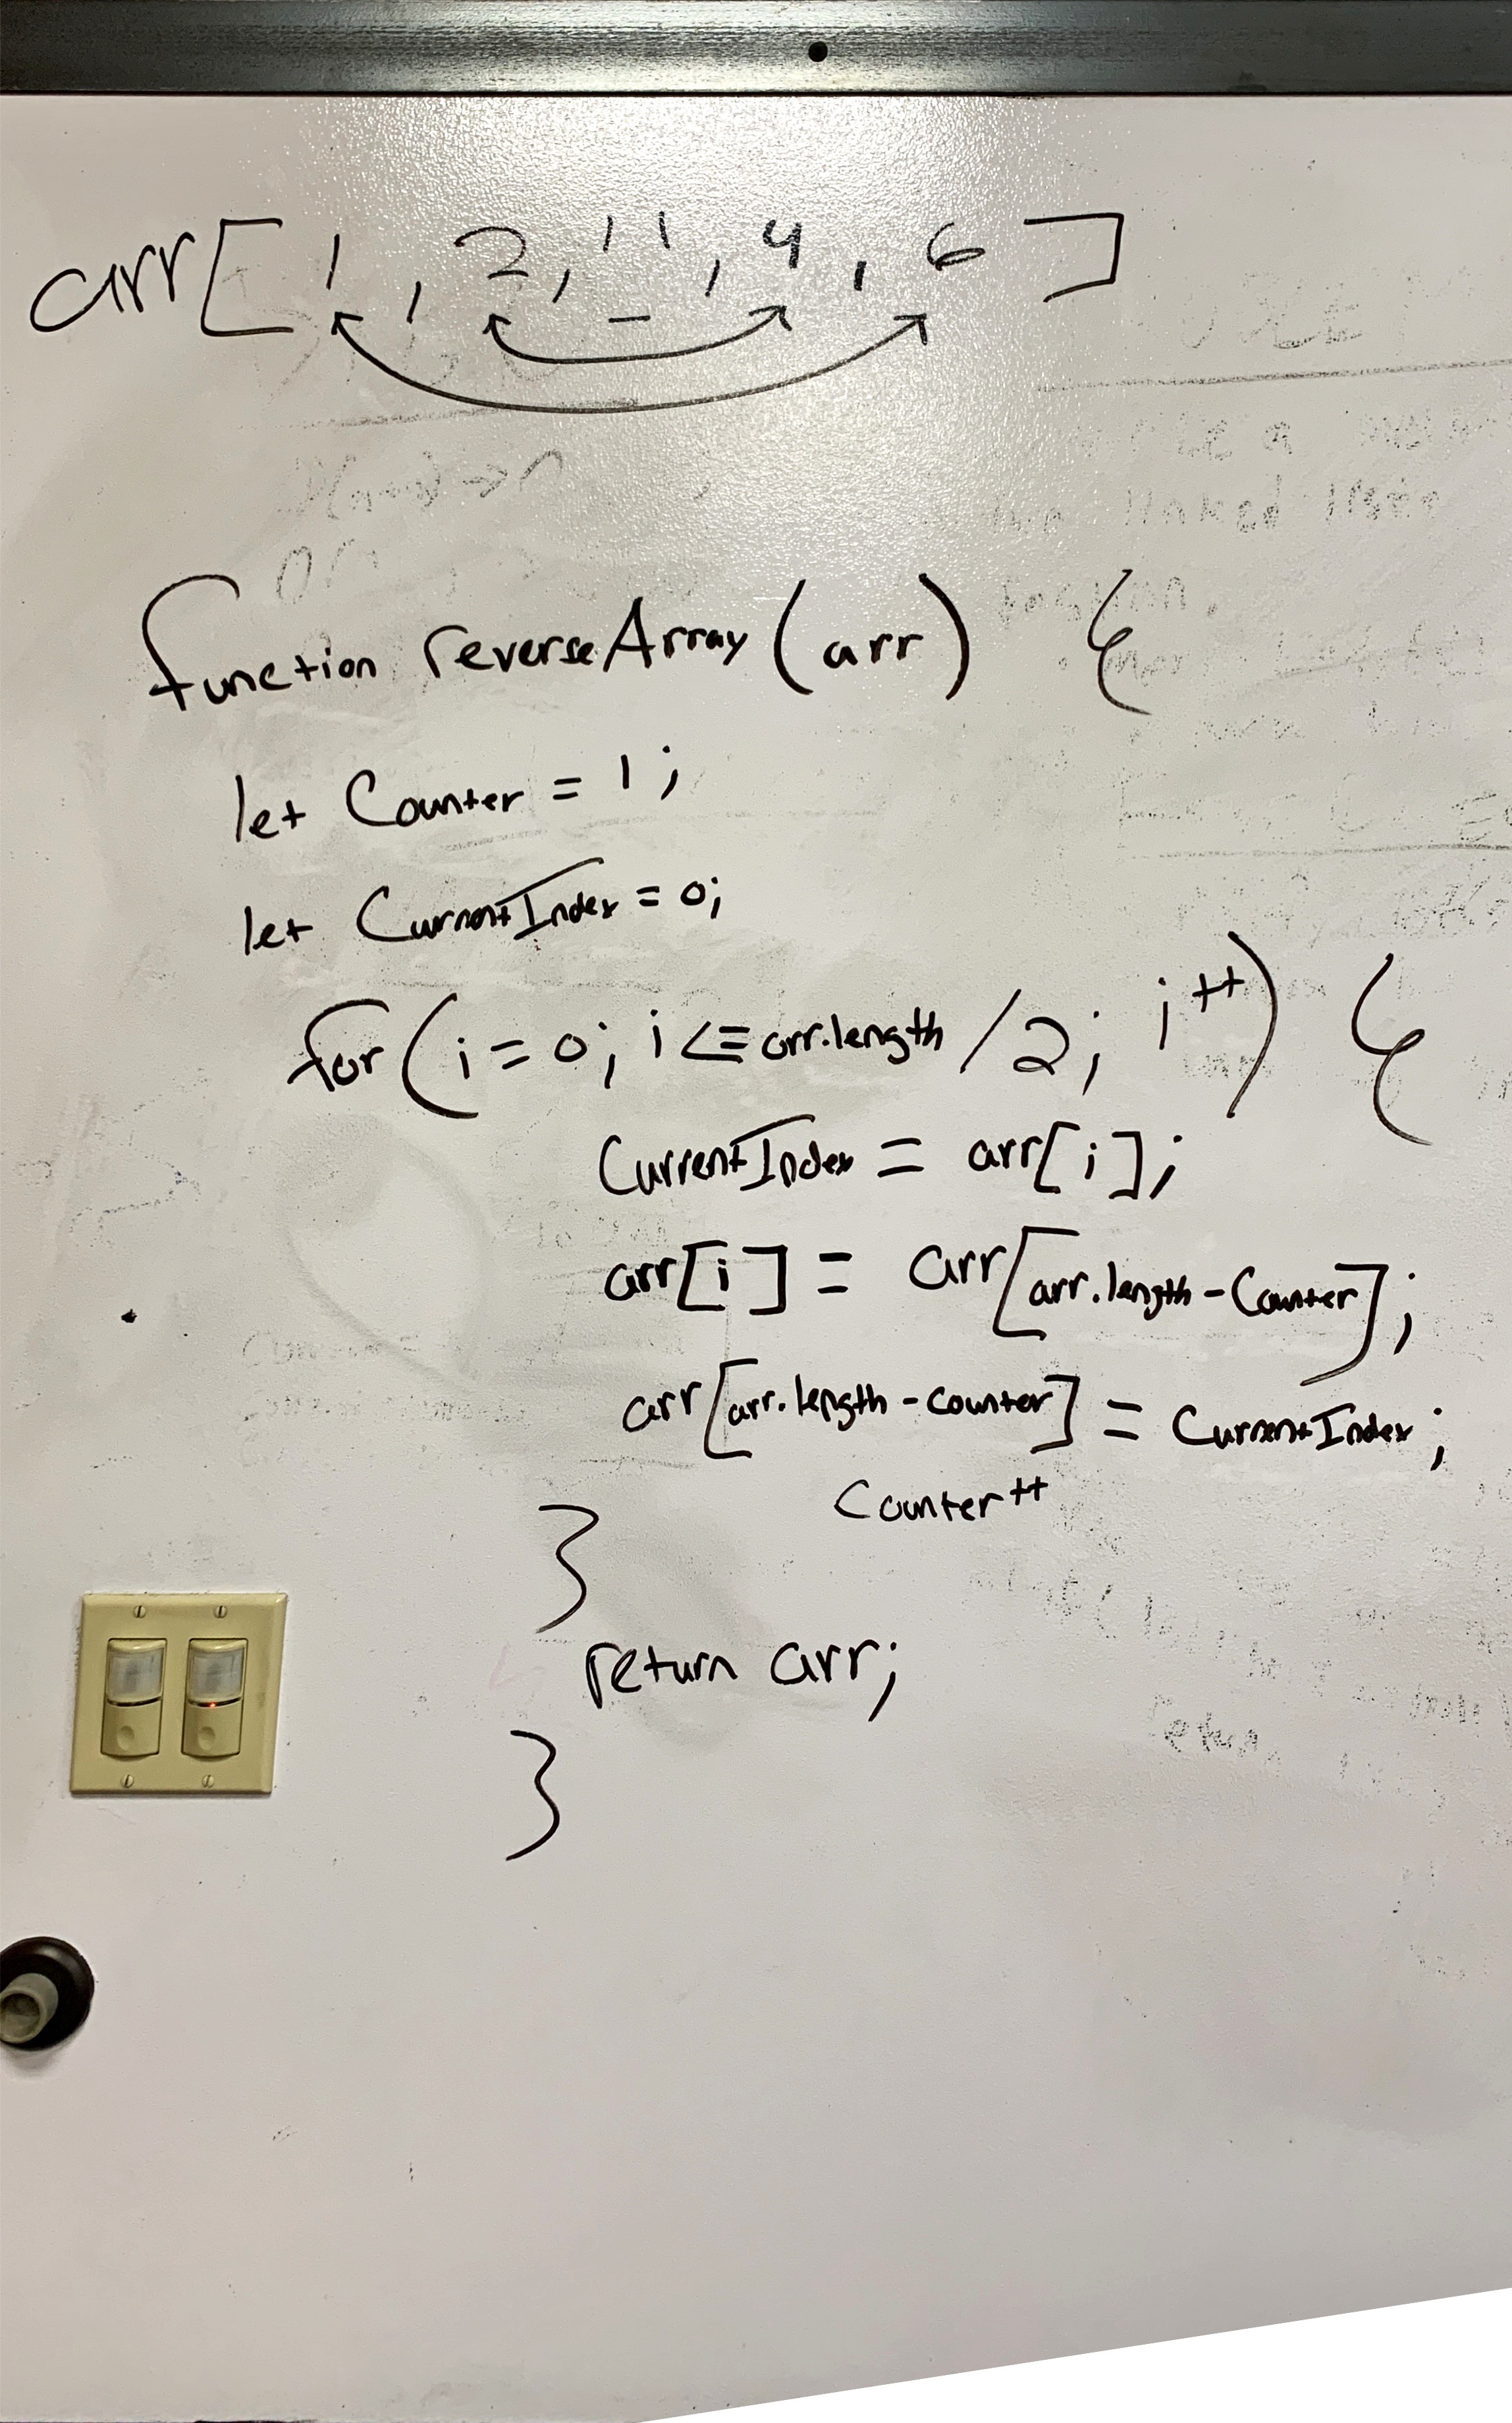 arr[ 1 , 2 , 11 , 4 , 6 ]
function reverseArray (arr) {
let Counter = 1 ;
let CurrentIndex = 0;
for ( i = 0; i <= arr.length / 2; i++) {
CurrentIndex = arr[i];
arr[i] = arr[arr.length - Counter];
arr[arr.length - counter] = CurrentIndex;
Counter++
}
return arr;
}